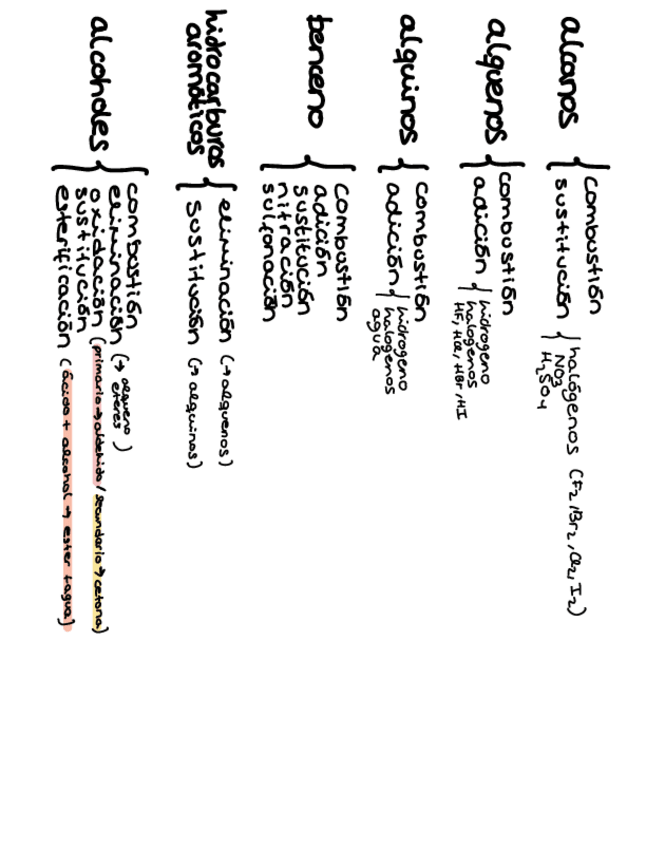 alcanos
combustión
sustitución
halógenos (F₂, Br₂, Cl₂, I₂)
NO₃
H₂SO₄
alquenos
combustión
adición
hidrogeno
halogenos
HF, HCl, HBr, HI
alquinos
combustión
adición
hidrogeno
halogenos
agua
benceno
combustión
adición
sustitución
nitración
sulfonación
hidrocarburos
aromáticos
eliminación (→ alquenos)
sustitución (→ alquinos)
alcoholes
combustión
eliminación (→ alqueno
eteres )
oxidación (primario → aldehido / secundario → cetona)
sustitución
esterificación (ácido + alcohol → ester + agua)